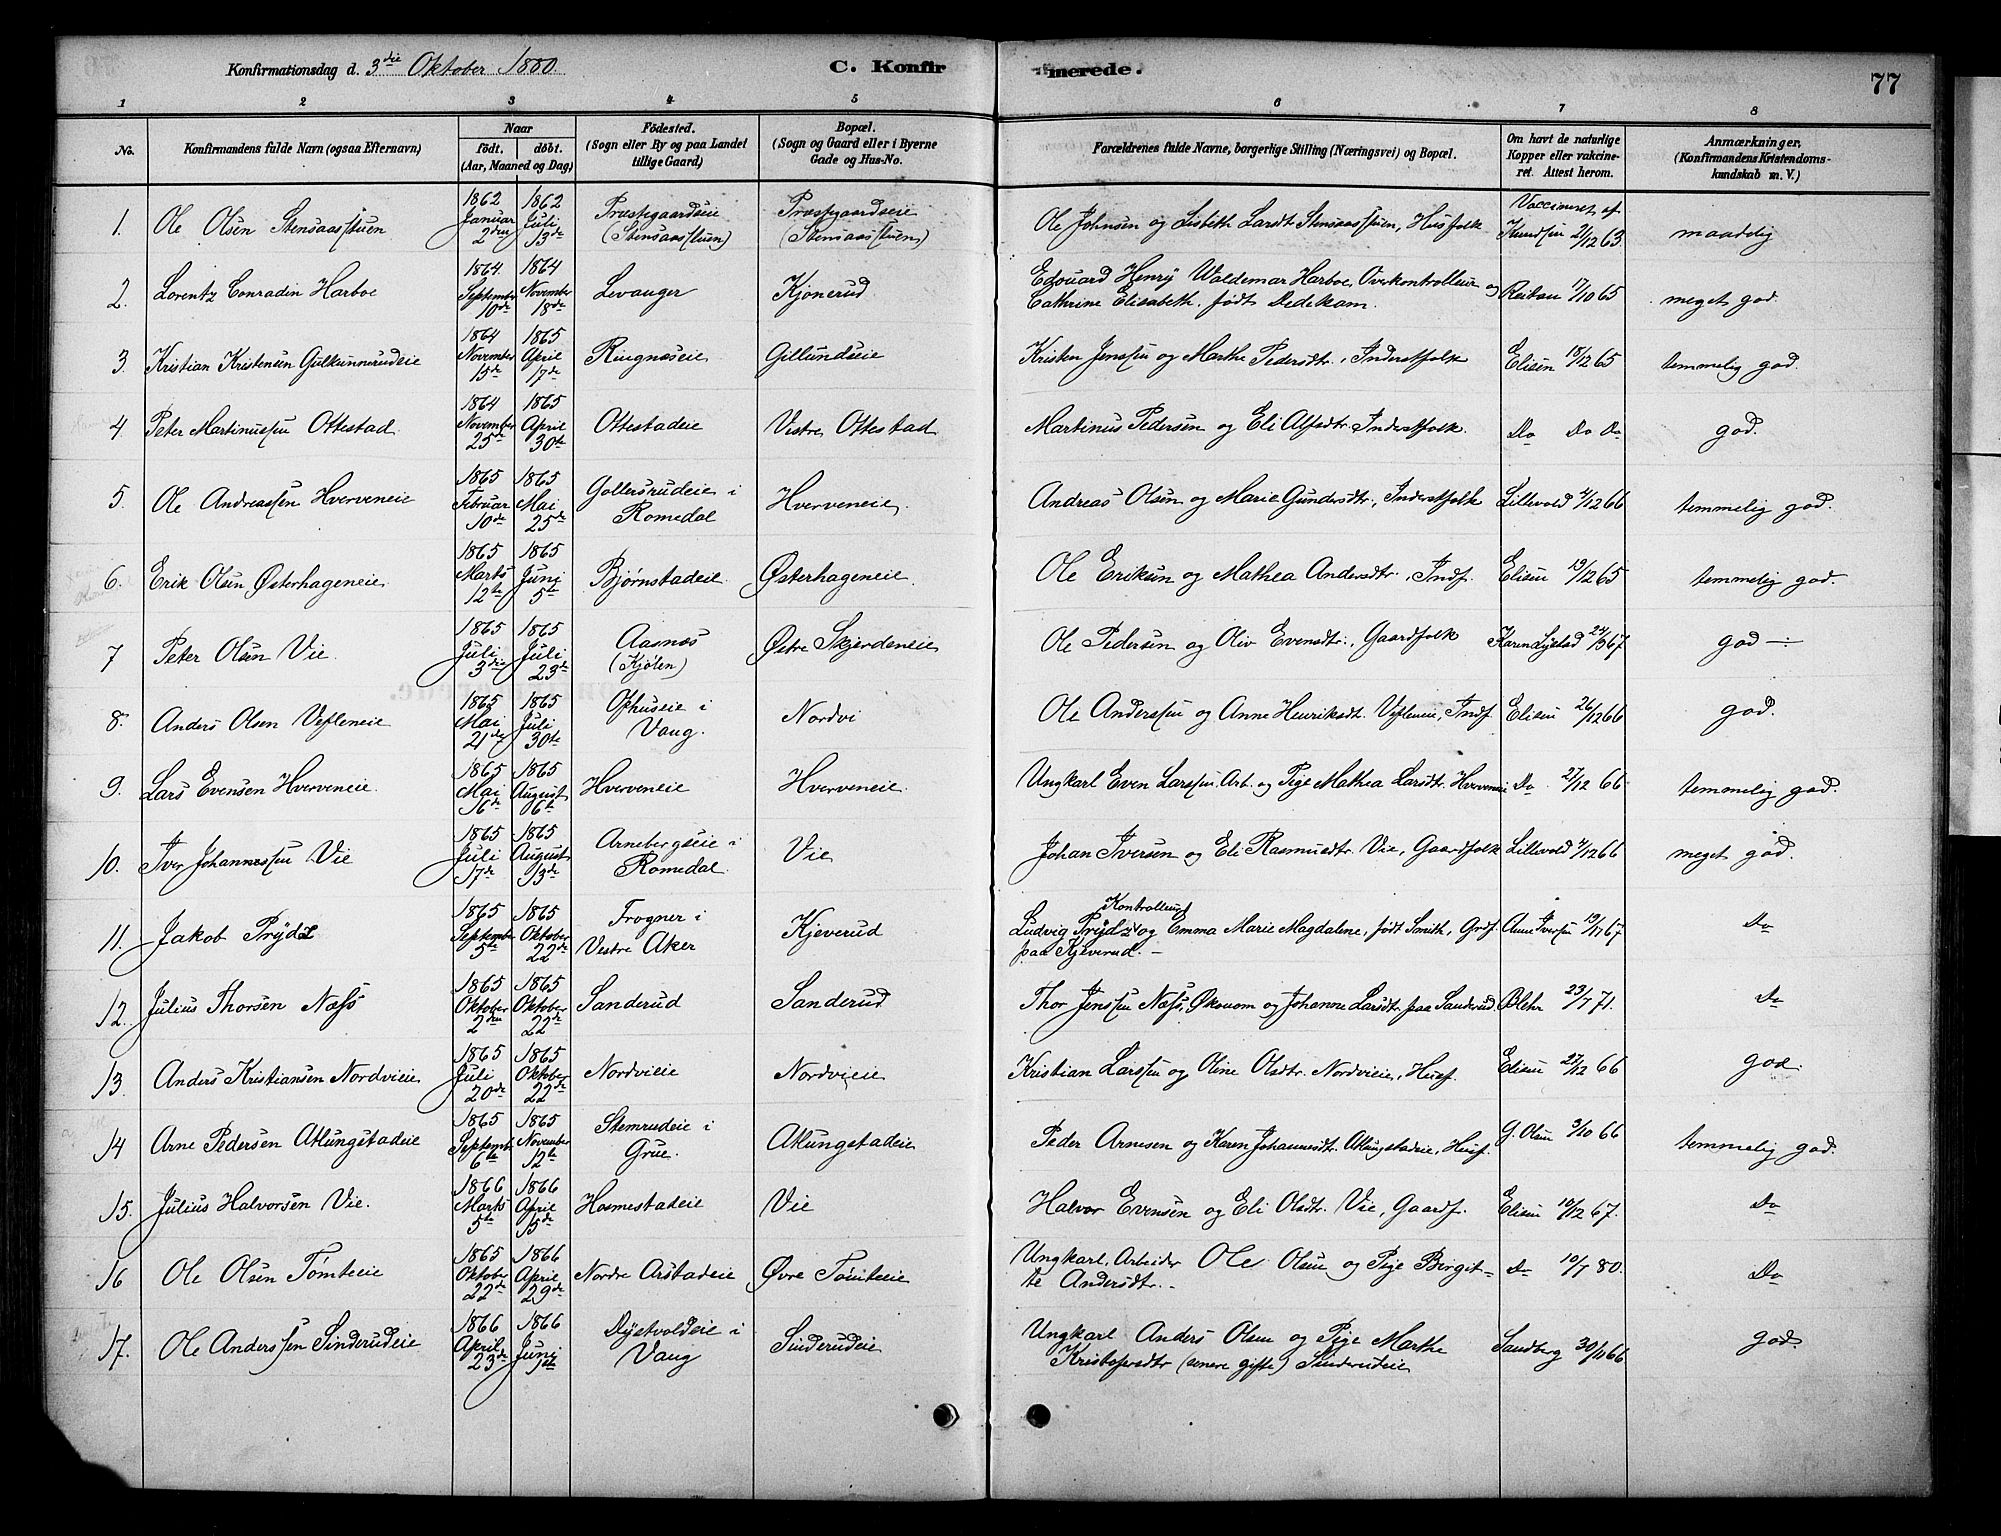 Konfirmationsdag d. 3die Oktober 1880. C. Konfirmerede. 77
1 2 3 4 5 6 7 8
No. Konfirmandens fulde Navn (ogsaa Efternavn) Naar født. døbt. (Aar, Maaned og Dag) Fødested. (Sogn eller By og paa Landet tillige Gaard) Bopæl. (Sogn og Gaard eller i Byerne Gade og Hus-No. Forældrenes fulde Navne, borgerlige Stilling (Næringsvei) og Bopæl. Om havt de naturlige Kopper eller vakcineret. Attest herom. Anmærkninger. (Konfirmandens Kristendomskundskab m. V.)
1. Ole Olsen Stensaasstuen 1862 Januar 2den 1862 Juli 13de Præstegaardseie (Stensaasstuen) Præstegaardseie (Stensaasstuen) Ole Johnsen og Lisbeth Larsdt. Stensaasstuen, Husfolk Vaccineret af Knudsen 2/12 63. maadelig
2. Lorentz Conradin Harboe 1864. September 10de 1864 November 18de Levanger Kjønerud Edouard Henry Waldemar Harboe, Overkontrolleur og Cathrine Elisabeth født Dedekam. Reitan 17/10 65 meget god.
3. Kristian Kristensen Gulkunnerudeie 1864 November 15de 1865 April 17de Ringnæseie Gillundseie Kristen Jenssen og Marthe Pedersdtr., Inderstfolk Elisen 18/12 65 temmelig god.
4 Peter Martinussen Ottestad 1864 November 25de 1865 April 30te Ottestadeie Vestre Ottestad Martinus Pedersen og Eli Alfsdtr. Inderstfolk. Do Do Do god.
5. Ole Andreassen Hverveneie 1865 Februar 10de 1865 Mai 25de Gollersrudeie i Romedal Hverveneie. Andreas Olsen og Marie Gundersdtr., Inderstfolk Lillevold 4/12 66 temmelig god.
6. Erik Olsen Østerhageneie 1865 Marts 12te 1865 Juni 5te Bjørnstadeie Østerhageneie. Ole Eriksen og Mathea Andersdtr., Indf. Elisen 19/12 65 temmelig god.
7 Peter Olsen Vie. 1865 Juli 3die 1865 Juli 23de Aasnæs (Kjølen) Østre Skjerdeneie Ole Pedersen og Oliv Evensdtr., Gaardfolk Karen Lystad 24/3 67 god
8. Anders Olsen Vefleneie 1865 Mai 21de 1865 Juli 30te Ophuseie i Vang. Nordvi Ole Anderssen og Anne Henriksdt. Vefleneie, Indf. Elisen 26/12 66 god.
9. Lars Evensen Hverveneie. 1865 Mai 16de 1865 August 6te Hverveneie Hverveneie. Ungkarl Even Larssen. Arb. og Pige Mathea Larsdtr. Hverveneie Do 27/12 66. temmelig god.
10. Iver Johannessen Vie 1865 Juli 17de 1865 August 13de Arnebergseie i Romedal. Vie Johan Iversen og Eli Rasmusdtr. Vie, Gaardfolk Lillevold 4/12 66 meget god.
11. Jakob Prydz 1865 September 5te 1865 Oktober 22de Frogner i Vestre Aker Kjeverud Ludvig Prydz, Kontrolleur og Emma Marie Magdalene, født Smith, Grdf. paa Kjeverud. Anne Iversen 19/7 67 Do
12. Julius Thorsen Næss 1865 Oktober 2den 1865 Oktober 22de Sanderud Sanderud Thor Jenssen Næss, Økonom og Johanne Larsdtr. paa Sanderud. Blehr 23/7 71. Do
13. Anders Kristiansen Nordvieie 1865 Juli 20de 1865 Oktober 22de Nordvieie Nordvieie Kristian Larssen og Oline Olsdtr. Nordvieie, Husf. Elisen 27/12 66 god.
14 Arne Pedersen Atlungstadeie 1865 Septemb. 6te 1865 November 12te Stemrudeie i Grue. Atlungstadeie Peder Arnesen og Karen Johannesdt. Atlungstadeie, Husf. G. Olsen 3/10 66 temmelig god.
15. Julius Halvorsen Vie. 1866 Marts 5te 1866 April 15de Homestadeie Vie Halvor Evensen og Eli Olsdtr. Vie, Gaardf. Elisen 10/12 67. Do
16 Ole Olsen Tømteeie 1865 Oktober 22de 1866 April 29de Nordre Arstadeie Øvre Tømteeie Ungkarl, Arbeider Ole Olsen og Pige Birgitte Andersdtr. Do 10/7 80. Do
17. Ole Anderssen Sinderudeie 1866 April 23de 1866 Juni 1ste Dystvoldeie i Vang Sinderudeie Ungkarl Anders Olsen og Pige Marthe Kristofersdtr (senere gifte) Sinderudeie Sandberg 30/10 66 god.